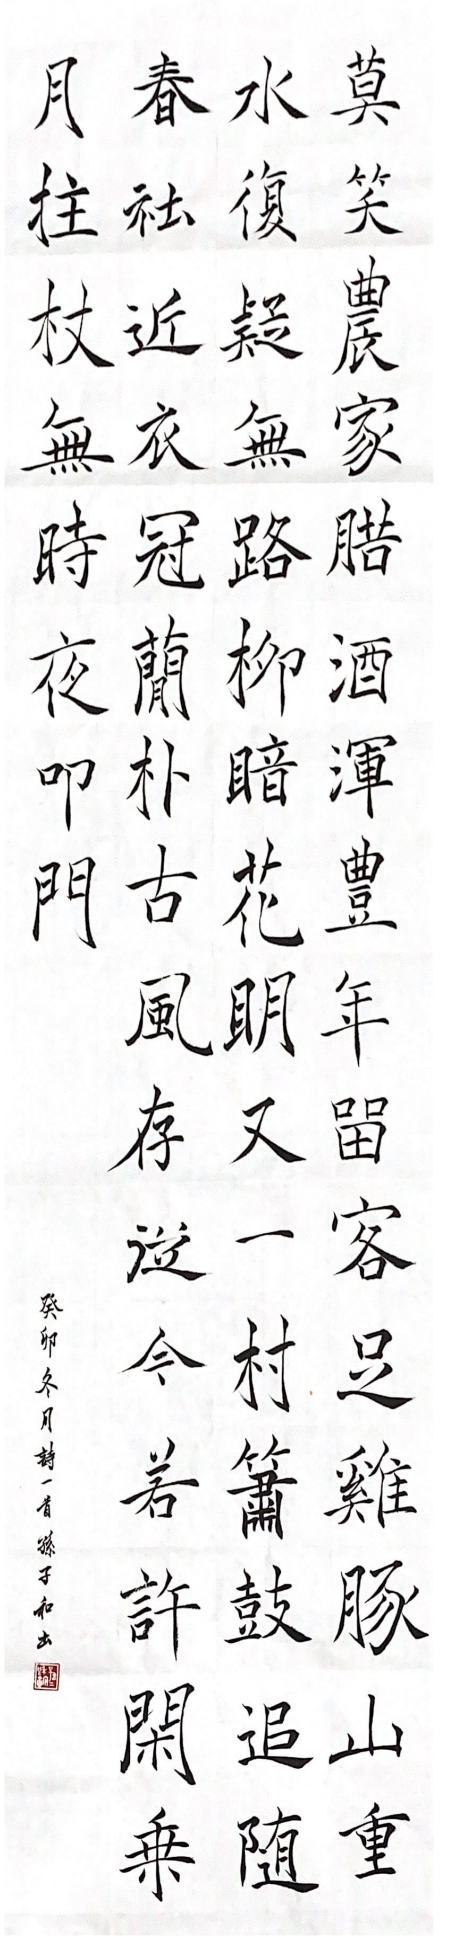 莫笑農家腊酒渾豊年留客足雞豚山重
水復疑無路柳暗花明又一村簫鼓追随
春社近衣冠蕳朴古風存從今若許閑乗
月拄杖無時夜叩門
癸卯冬月詩一首孫子和出